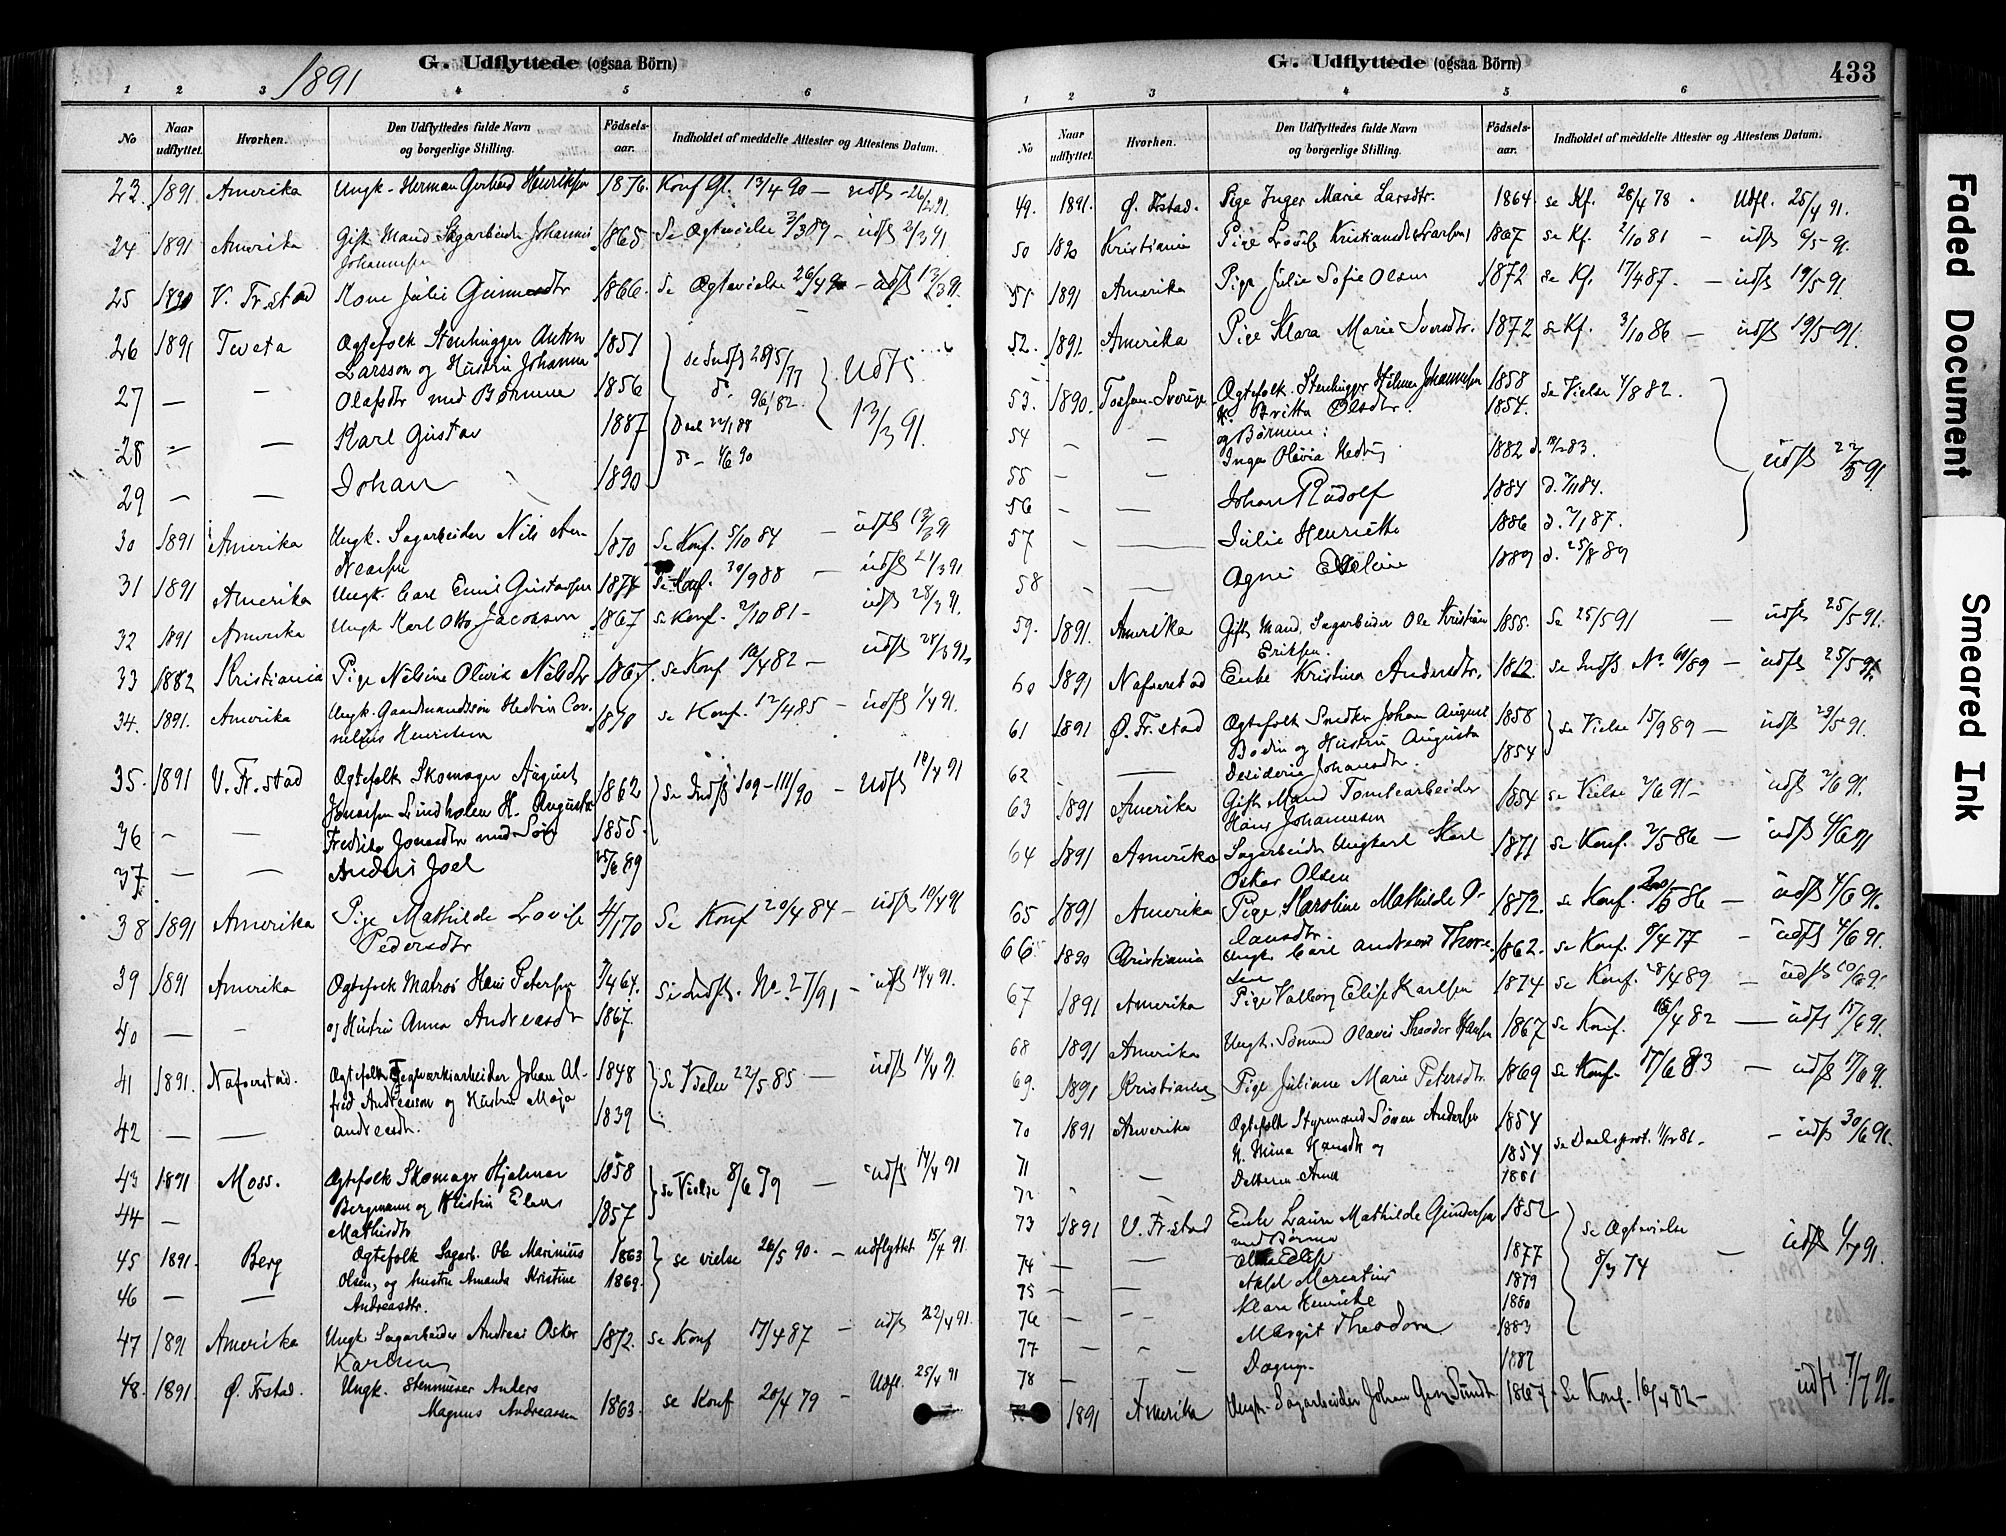 G. Udflyttede (ogsaa Börn)
1891
1 2 3 4 5 6
No Naar udflyttet. Hvorhen. Den Udflyttedes fulde Navn og borgerlige Stilling. Födsels-aar. Indholdet af meddelte Attester og Attestens Datum.
23. 1891. Amerika Ungk. Herman Gerhard Henriksen 1876. Konf Gl. 13/4 90 — udfl. 26/2 91.
24 1891 Amerika Gift Mand Sagarbeider Johannes 1865 Se Ægtevielse 3/3 89 — udfl. 2/3 91
Johannesen
25 1890 V. Fr.stad Kone Julie Gunnesdtr 1866. Se Ægtevielse 26/4 90 — udfl 13/3 91.
26 1891 Tveta Ægtefolk Stenhugger Anton 1851 se Indfl 28 95/77
Larsson og Hustru Johanna
27 — — Olafsdtr med Børnene 1856 do 96/82. Udfl.
28 — — Karl Gustav 1887 Daal 22/1 88 13/3 91.
29 — — Johan 1890 do — 4/6 90
30 1891 Amerika Ungk. Sagarbeider Nils An- 1870 Se Konf. 5/10 84 — udfl 13/3 91
dreasen
31 1891 Amerika Ungk. Carl Emil Gustavsen 1874 Se Konf. 30/9 88 — udfl 21/3 91
32 1891 Amerika Ungk Karl Otto Jacobsen 1867 se Konf. 2/10 81 — udfl 28/3 91.
33 1882 Kristiania Pige Nilsine Olivia Nilsdtr 1867. se Konf. 16/4 82 — udfl 28/3 91.
34. 1891. Amerika Ungk. Gaardmandssøn Hedvin Cor- 1870 se Konf. 12/4 85 — udfl 1/4 91.
nelius Henriksen
35. 1891 V. Fr.stad Ægtefolk Skomager August 1862 se Indfl 109–111/90 — Udfl 10/4 91
Jonassen Lindholen H. Augusta
36 — — Fredrika Jonasdtr med Søn 1855.
37 — — Anders Joel 15/6 89
38 1891 Amerika Pige Mathilde Lovise 4/1 70 Se Konf 20/4 84 — udfl 10/4 91
Pedersdtr
39 1891 Amerika Ægtefolk Matros Hans Petersen 7/4 64. Se Indfl. No. 27/91 — udfl 14/4 91.
40 — — og Hustru Anna Andreasdtr 1867.
41 1891. Nafverstad. Ægtefolk Teglværksarbeider Johan Al- 1848 Se Vielse 22/5 85 — udfl 14/4 91.
fred Andreasson og Hustru Maja 1839
42 — — Andreasdtr.
43 1891 Moss. Ægtefolk Skomager Hjalmar 1858 se Vielse 8/6 79 — udfl 14/4 91
Bergmann og Hustru Elen
44 — Mathisdtr 1857
45 1891. Berg Ægtefolk Sagarb. Ole Marinius 1863 se vielse 26/5 90. — udflyttet 15/4 91.
Olsen, og hustru Amanda Kristine 1869.
46 — — Andreasdtr.
47 1891 Amerika Ungk Sagarbeider Andreas Oskar 1872. se Konf 17/4 87 — udfl. 22/4 91.
Karlsen
48. 1891. Ø. Frstad. Ungk. Stenmurer Anders 1863. se Konf 20/4 79 — Udfl. 25/4 91
Magnus Andreassen
G. Udflyttede (ogsaa Börn)
433
1 2 3 4 5 6
No Naar udflyttet. Hvorhen. Den Udflyttedes fulde Navn og borgerlige Stilling. Födsels-aar. Indholdet af meddelte Attester og Attestens Datum.
49. 1891. Ø. Frstad. Pige Inger Marie Larsdtr. 1864. se Kf. 28/4 78 . Udfl. 25/4 91.
50 Kristiania Pige Lovise 1867 se Kf. 2/10 81 — udfl 6/5 91.
51. 1891 Amerika Pige Julie Sofie Olsen 1872 se Kf. 17/4 87. — udfl 19/5 91.
52. 1891. Amerika Pige Klara Marie Iversdtr. 1872 se Kf. 3/10 86 — udfl 19/5 91.
53. 1890. Ægtefolk. Stenhugger Hilmer Johannesen 1858 se Vielse 4/8 82.
H. Britta Olsdtr. 1854.
54 — — og Børnene:
55 — — Inga Olivia Hedvig 1882 d. 18/2 83. udfl 22/5 91
56 — — Johan Rudolf 1884 d. 7/1 84.
57 — Julie Henriette 1886 d. 2/1 87.
58 — Agnes Eveline 1889 d. 25/8 89
59. 1891. Amerika Gift Mand. Sagarbeider Ole Kristian 1855. Se 25/5 91 — udfl 25/5 91.
Eriksen.
60 1891 Nafverstad Enke Kristina Andersdtr. 1812. se Indfl No. 60/89 — udfl 25/5 91.
61 1891 Ø. Fr.stad Ægtefolk Snedker Johan August 1858 se Vielse 15/9 89 — udfl 29/5 91.
Bodin og Hustru Augusta 1854
62 — Desideria Johansdtr.
63 1891 Amerika Gift Mand Tomtearbeider 1854 se Vielse 2/6 91 — udfl 2/6 91.
Hans Johannesen
64 1891 Amerika Sagarbeider Ungkarl Karl 1871 se Konf. 2/5 86 — udfl 4/6 91
Oskar Olsen
65 1891 Amerika Pige. Karoline Mathilde O- 1872. se Konf. 2/5 86 — udfl 4/6 91.
lausdtr.
66 1890 Christiania Ungk. Carl Andreas Thore- 1862. se Konf. 8/4 77 — udfl 4/6 91.
sen
67 1891 Amerika Pige Valborg Elise Karlsen 1874 se Konf. 28/4 89 — udfl 10/6 91.
68 1891 Amerika Ungk. Sømand Olaves Theodor Hansen 1867 se Konf. 16/4 82 — udfl 17/6 91.
69. 1891 Kristiania Pige Juliane Marie Petersdtr. 1869 se Konf. 17/6 83 — udfl 17/6 91.
70 1891 Amerika Ægtefolk Styrmand Søren Andersen 1854 se Daabsprot. 11/12 81 — — udfl 30/6 91.
71 — H. Mina Hansdtr og 1854
72 — Datteren Anna 1881
73 1891 V. Fr.stad Enke Laura Mathilde Gundersen 1852 se Ægtevielse
med Børnene 8/3 74 — udfl 1/7 91.
74 — — Elise 1877
75 — — Axel Marentius 1879
76 — — Klara Henrikke 1880
77 — — Margit Theodora 1883
78 — — Dagny. 1887
1891 Amerika Ungk. Sagarbeider Johan Georg Sundt 1867 Se Konf. 16/4 82 — udfl 7/7 91.
Faded Document
Smeared Ink